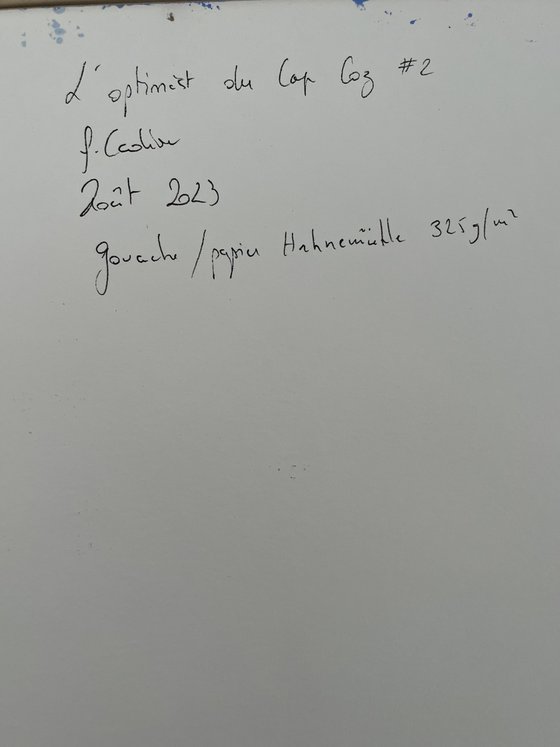 L'optimist du Cap Coz #2
Août 2023
gouache / papier Hahnemühle 325g/m²